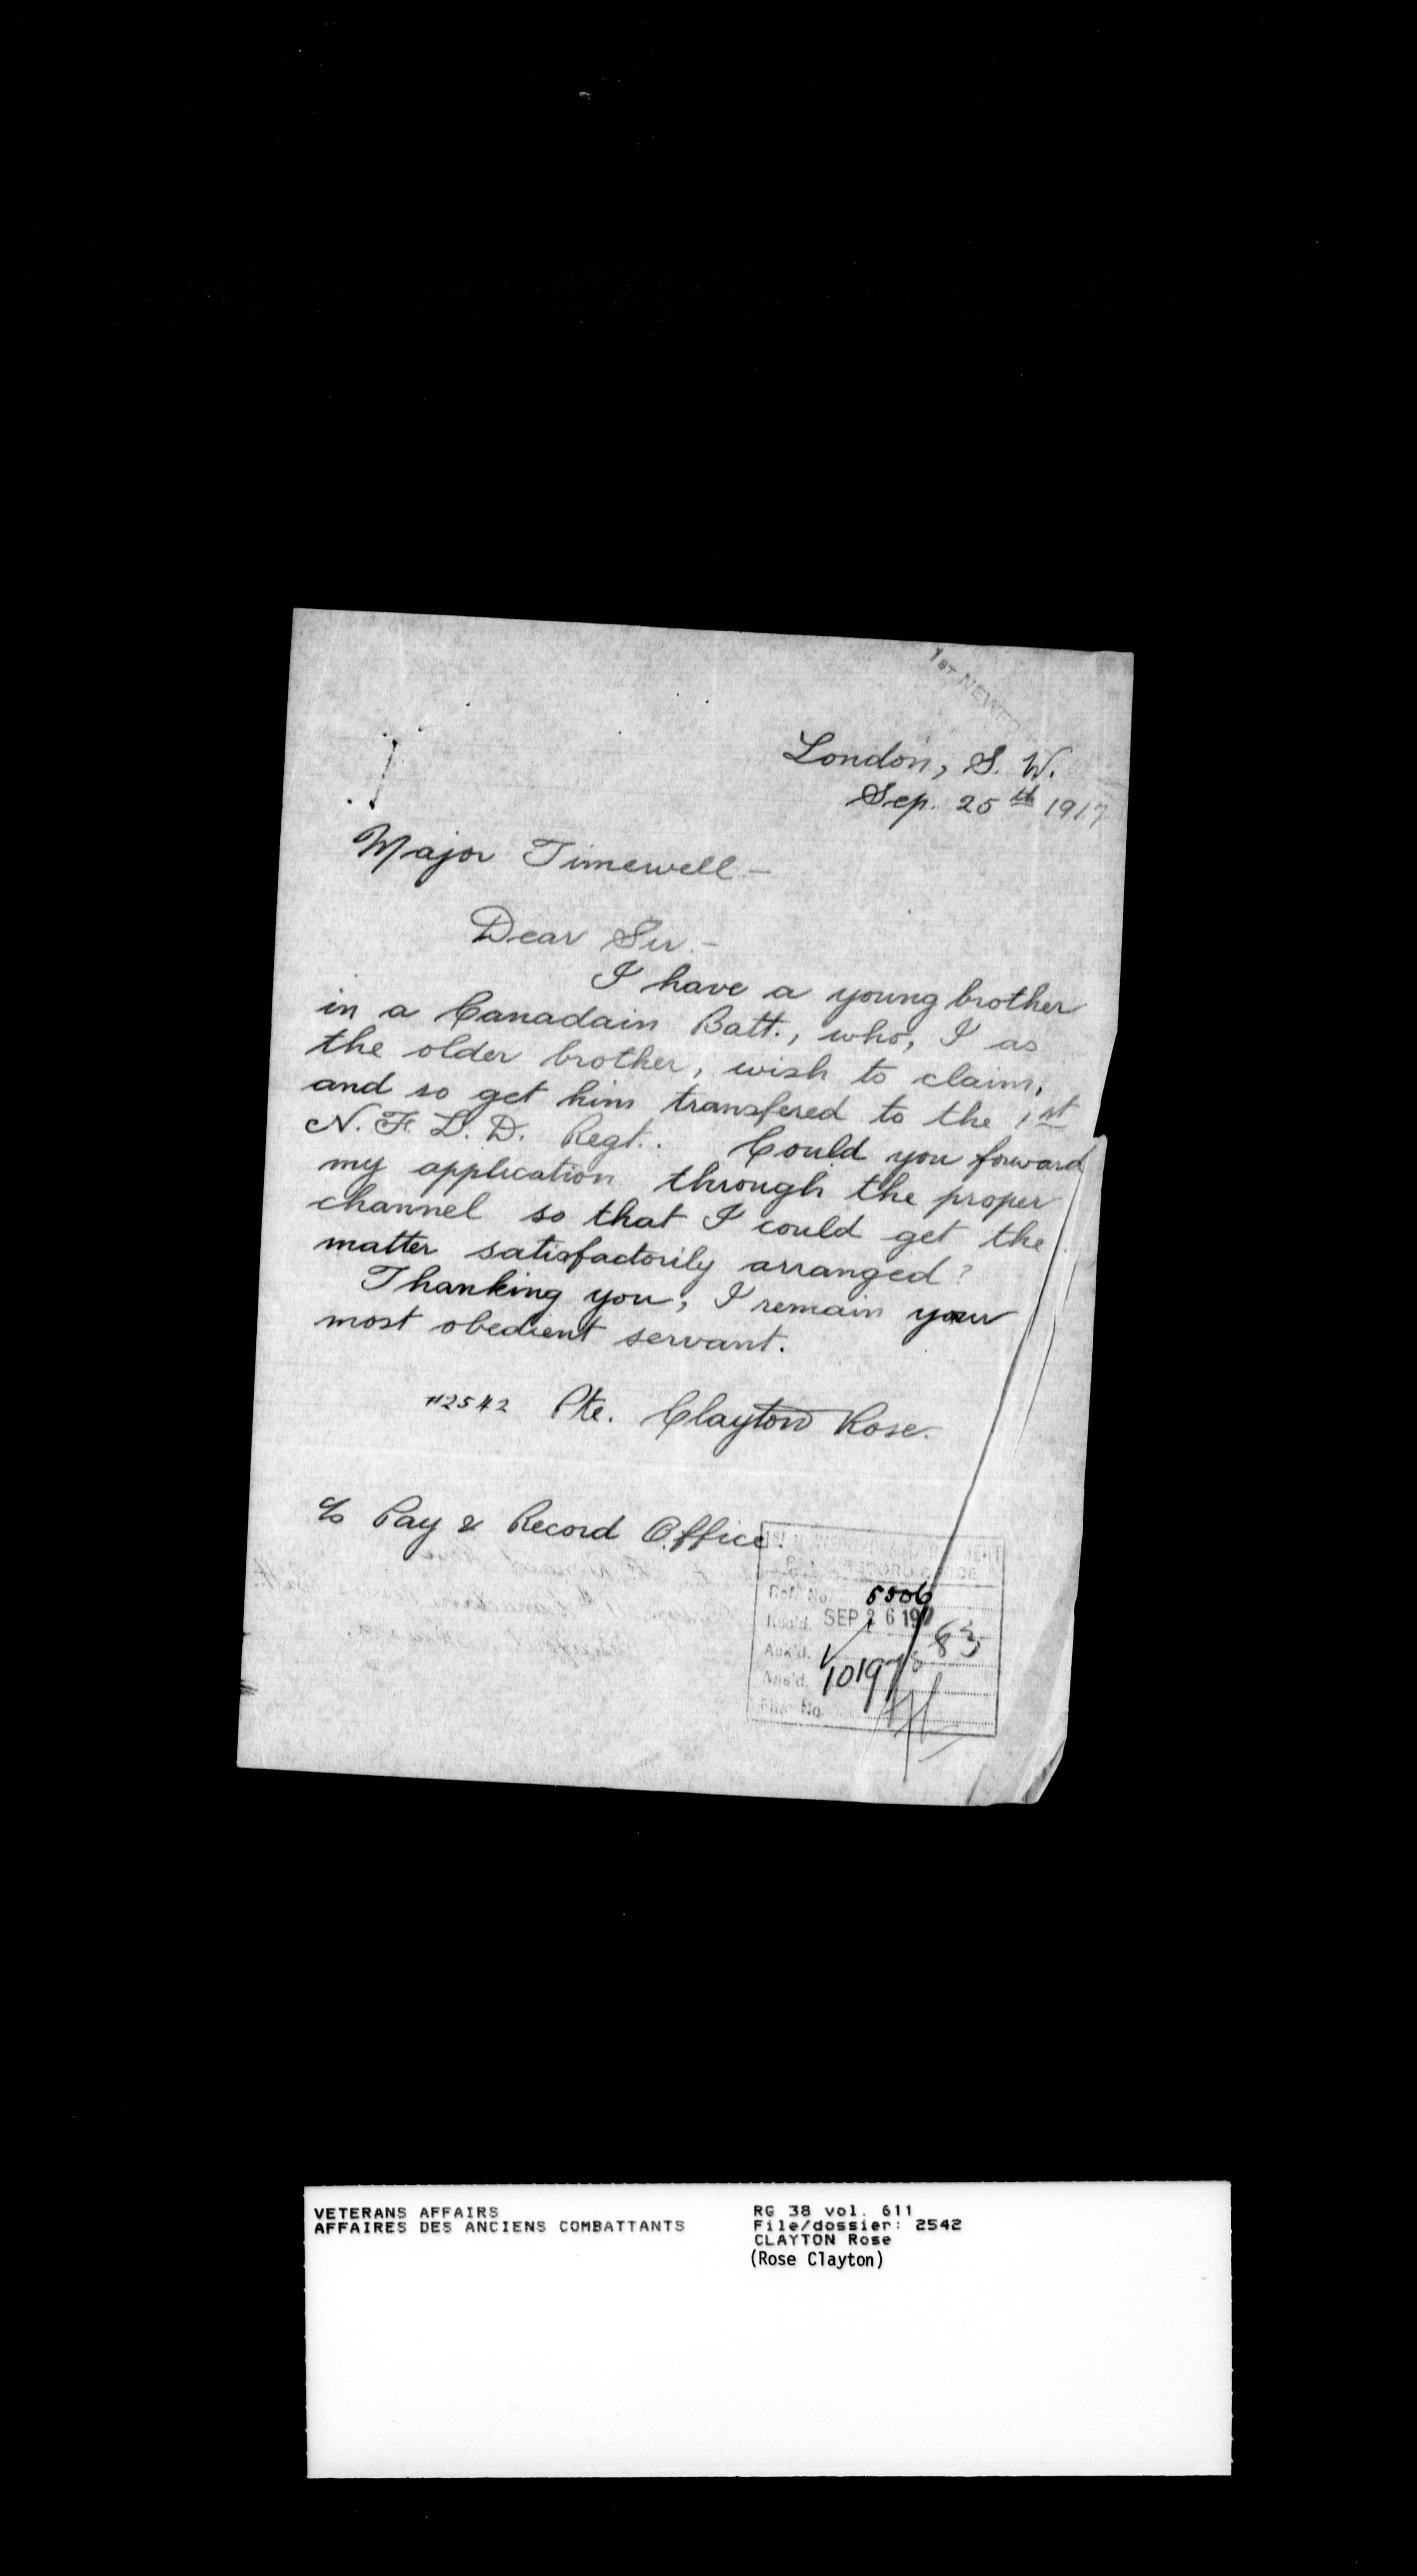 1ST NEWFO
London, S. W.
Sep. 25th 1917
Major Timewell –
Dear Sir. –
I have a young brother
in a Canadain Batt., who, I as
the older brother, wish to claim,
and so get him transfered to the 1st
N. F. L. D. Regt.. Could you forward
my application through the proper
channel so that I could get the
matter satisfactorily arranged?
Thanking you, I remain your
most obedient servant.
#2542 Pte. Clayton Rose.
c/o Pay & Record Office.
Ref. No. 5506
Rec'd. SEP 26 191
Ack'd.
Ans'd. 10197
File No.
VETERANS AFFAIRS
AFFAIRES DES ANCIENS COMBATTANTS
RG 38 vol. 611
File/dossier: 2542
CLAYTON Rose
(Rose Clayton)